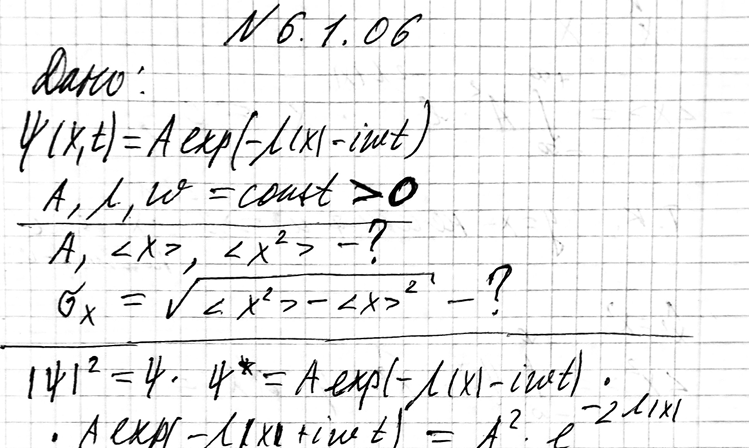 N 6.1.06
Дано:
Ψ(x,t) = A exp(-λ|x| - iωt)
A, λ, ω = const > 0
A, <x>, <x²> - ?
σₓ = √(<x²> - <x>²) - ?
|Ψ|² = Ψ · Ψ* = A exp(-λ|x| - iωt) ·
· A exp(-λ|x| + iωt) = A² · e^(-2λ|x|)